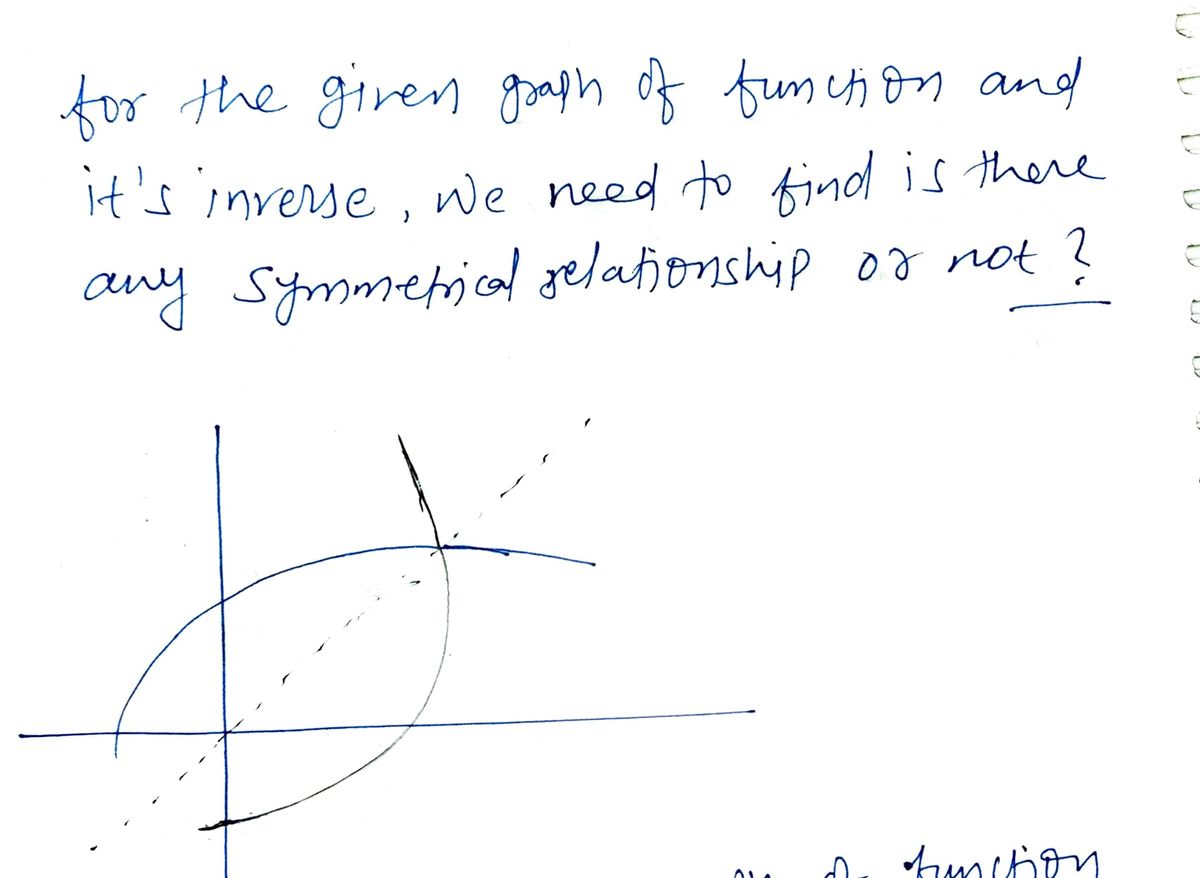 for the given graph of function and
it's inverse, we need to find is there
any symmetrical relationship or not ?
function